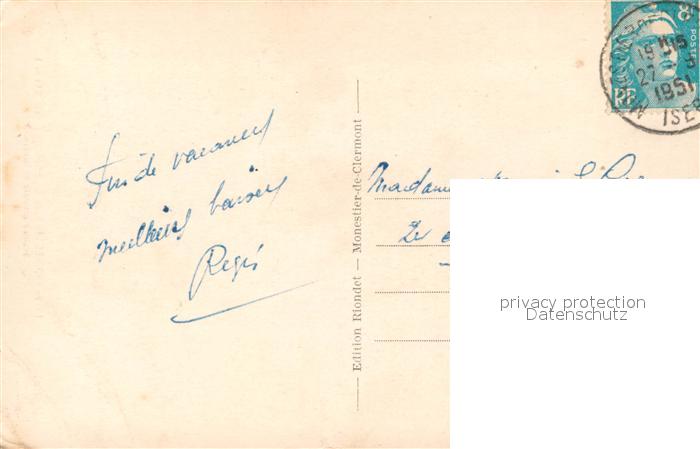 Fin de vacances
meilleurs baisers
Regis
Edition Riondet — Monestier-de-Clermont
Madame
privacy protection
Datenschutz
8
POSTES
RF
19
27
1951
ISE